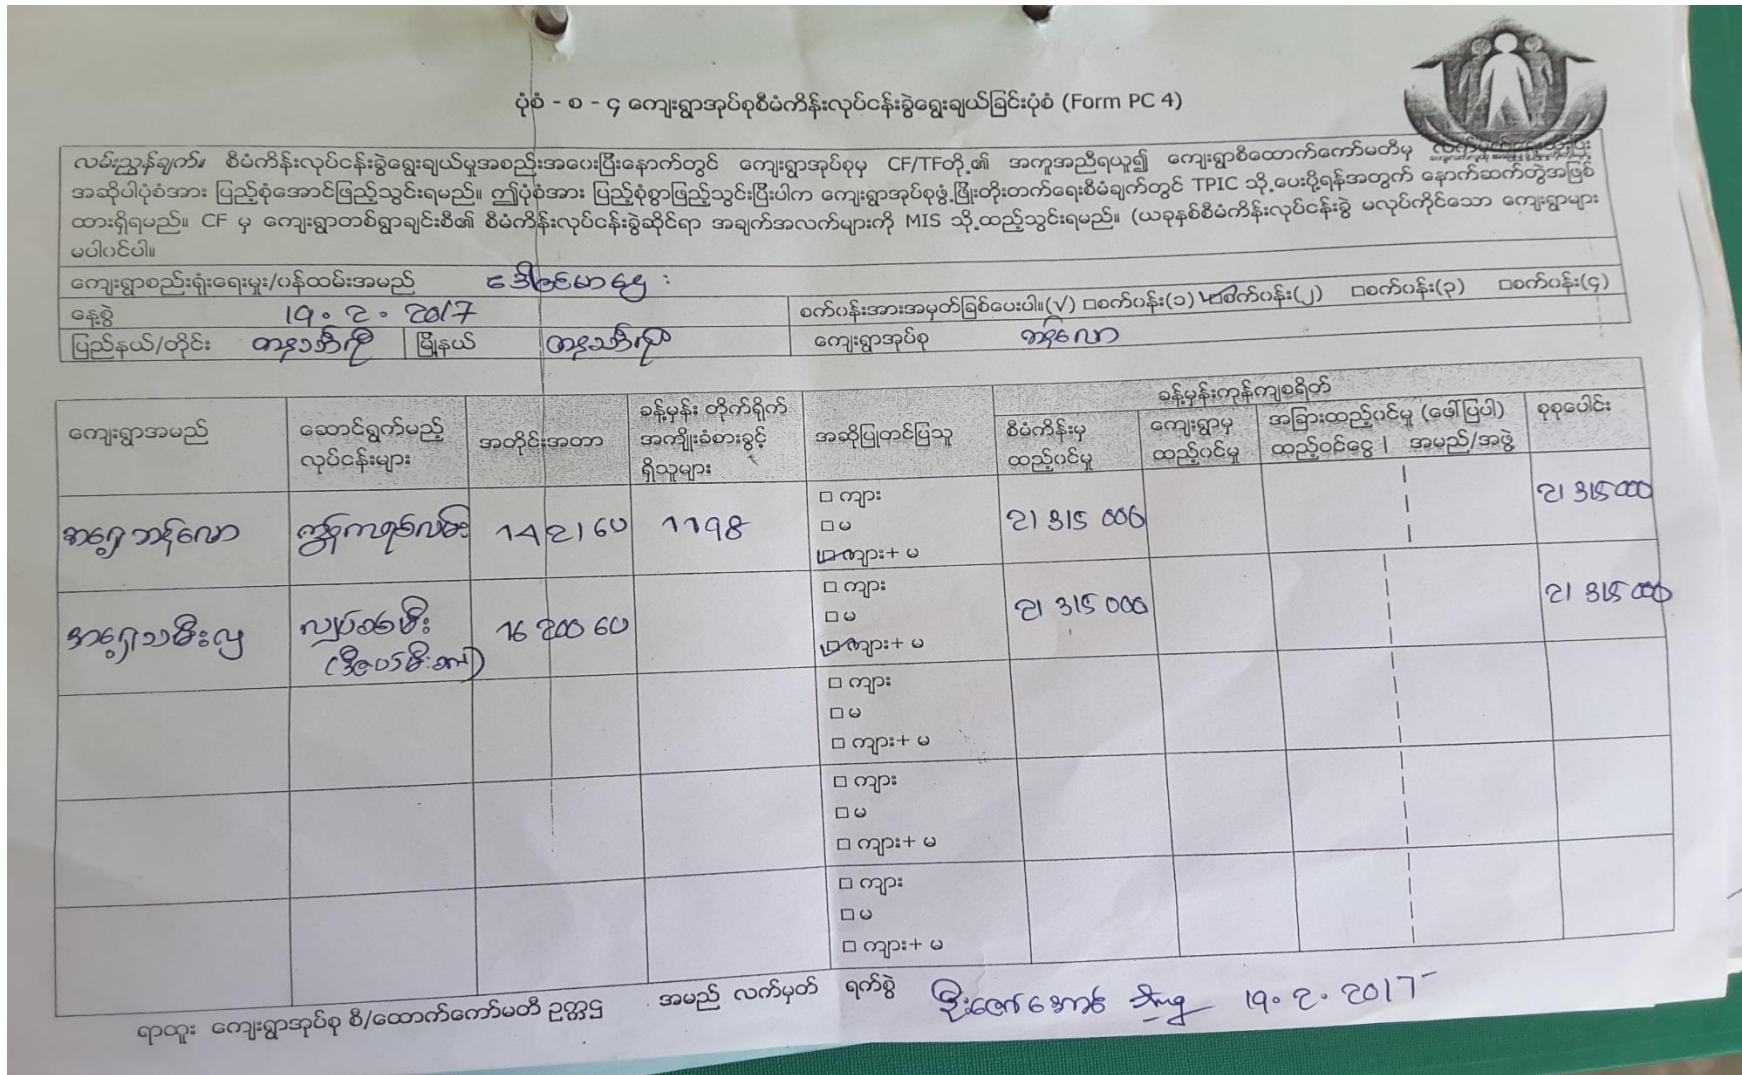 ပုံစံ - စ - ၄ ကျေးရွာအုပ်စုစီမံကိန်းလုပ်ငန်းခွဲရွေးချယ်ခြင်းပုံစံ (Form PC 4)
လမ်းညွှန်ချက်။ စီမံကိန်းလုပ်ငန်းခွဲရွေးချယ်မှုအစည်းအဝေးပြီးနောက်တွင် ကျေးရွာအုပ်စုမှ CF/TFတို့၏ အကူအညီရယူ၍ ကျေးရွာစီထောက်ကော်မတီမှ
အဆိုပါပုံစံအား ပြည့်စုံအောင်ဖြည့်သွင်းရမည်။ ဤပုံစံအား ပြည့်စုံစွာဖြည့်သွင်းပြီးပါက ကျေးရွာအုပ်စုဖွံ့ဖြိုးတိုးတက်ရေးစီမံချက်တွင် TPIC သို့ပေးပို့ရန်အတွက် နောက်ဆက်တွဲအဖြစ်
ထားရှိရမည်။ CF မှ ကျေးရွာတစ်ရွာချင်းစီ၏ စီမံကိန်းလုပ်ငန်းခွဲဆိုင်ရာ အချက်အလက်များကို MIS သို့ထည့်သွင်းရမည်။ (ယခုနှစ်စီမံကိန်းလုပ်ငန်းခွဲ မလုပ်ကိုင်သော ကျေးရွာများ
မပါဝင်ပါ။
ကျေးရွာစည်းရုံးရေးမှူး/ဝန်ထမ်းအမည် ဒေါ်ခင်မာဌေး
နေ့စွဲ 19.2.2017 စက်ဝန်းအားအမှတ်ခြစ်ပေးပါ။(√) □စက်ဝန်း(၁) ☑စက်ဝန်း(၂) □စက်ဝန်း(၃) □စက်ဝန်း(၄)
ပြည်နယ်/တိုင်း တနင်္သာရီ မြို့နယ် တနင်္သာရီ ကျေးရွာအုပ်စု ဘန်လော
ခန့်မှန်းကုန်ကျစရိတ်
ကျေးရွာအမည် ဆောင်ရွက်မည့် လုပ်ငန်းများ အတိုင်းအတာ ခန့်မှန်း တိုက်ရိုက် အကျိုးခံစားခွင့် ရှိသူများ အဆိုပြုတင်ပြသူ စီမံကိန်းမှ ထည့်ဝင်မှု ကျေးရွာမှ ထည့်ဝင်မှု အခြားထည့်ဝင်မှု (ဖော်ပြပါ) ထည့်ဝင်ငွေ | အမည်/အဖွဲ့ စုစုပေါင်း
□ ကျား
အရှေ့ဘန်လော ကွန်ကရစ်လမ်း 1198 □ မ 21 315 000 21 315 000
☑ ကျား+ မ
□ ကျား
□ မ 21 315 000 21 315 000
လျှပ်စစ်မီး ☑ ကျား+ မ
□ ကျား
□ မ
□ ကျား+ မ
□ ကျား
□ မ
□ ကျား+ မ
□ ကျား
□ မ
□ ကျား+ မ
ရာထူး ကျေးရွာအုပ်စု စီ/ထောက်ကော်မတီ ဥက္ကဋ္ဌ အမည် လက်မှတ် ရက်စွဲ 19.2.2017